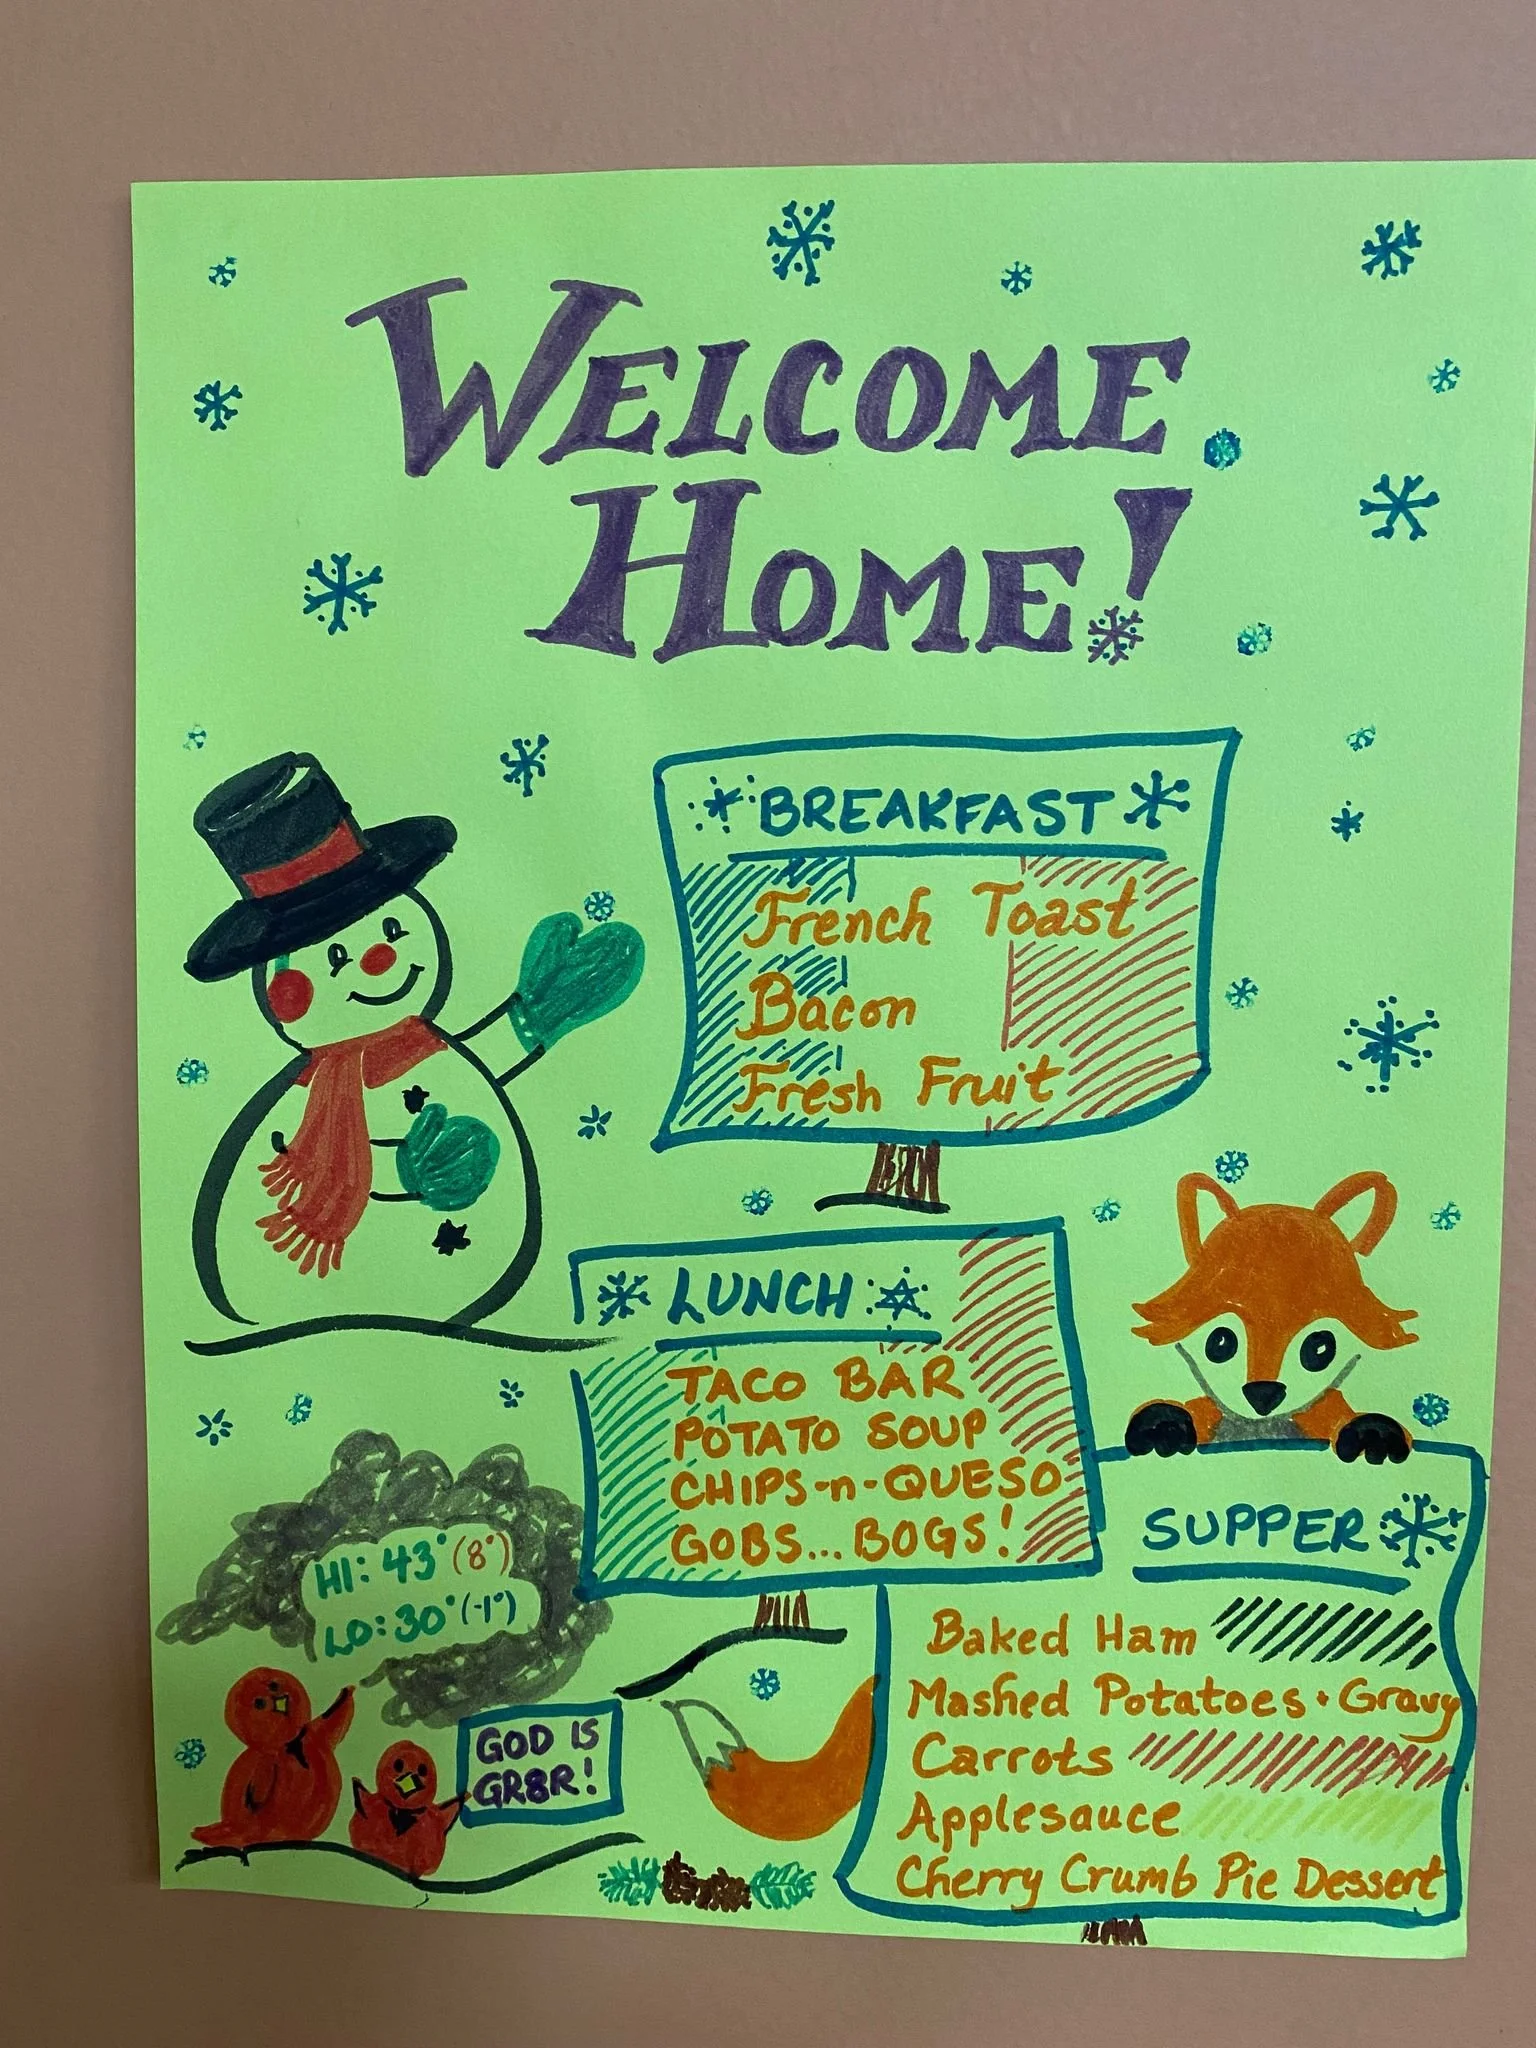 WELCOME
HOME!
BREAKFAST
French Toast
Bacon
Fresh Fruit
LUNCH
TACO BAR
POTATO SOUP
CHIPS-n-QUESO
GOBS...BOGS!
SUPPER
Baked Ham
Mashed Potatoes + Gravy
Carrots
Applesauce
Cherry Crumb Pie Dessert
HI: 43° (8°)
LO: 30° (-1°)
GOD IS
GR8R!